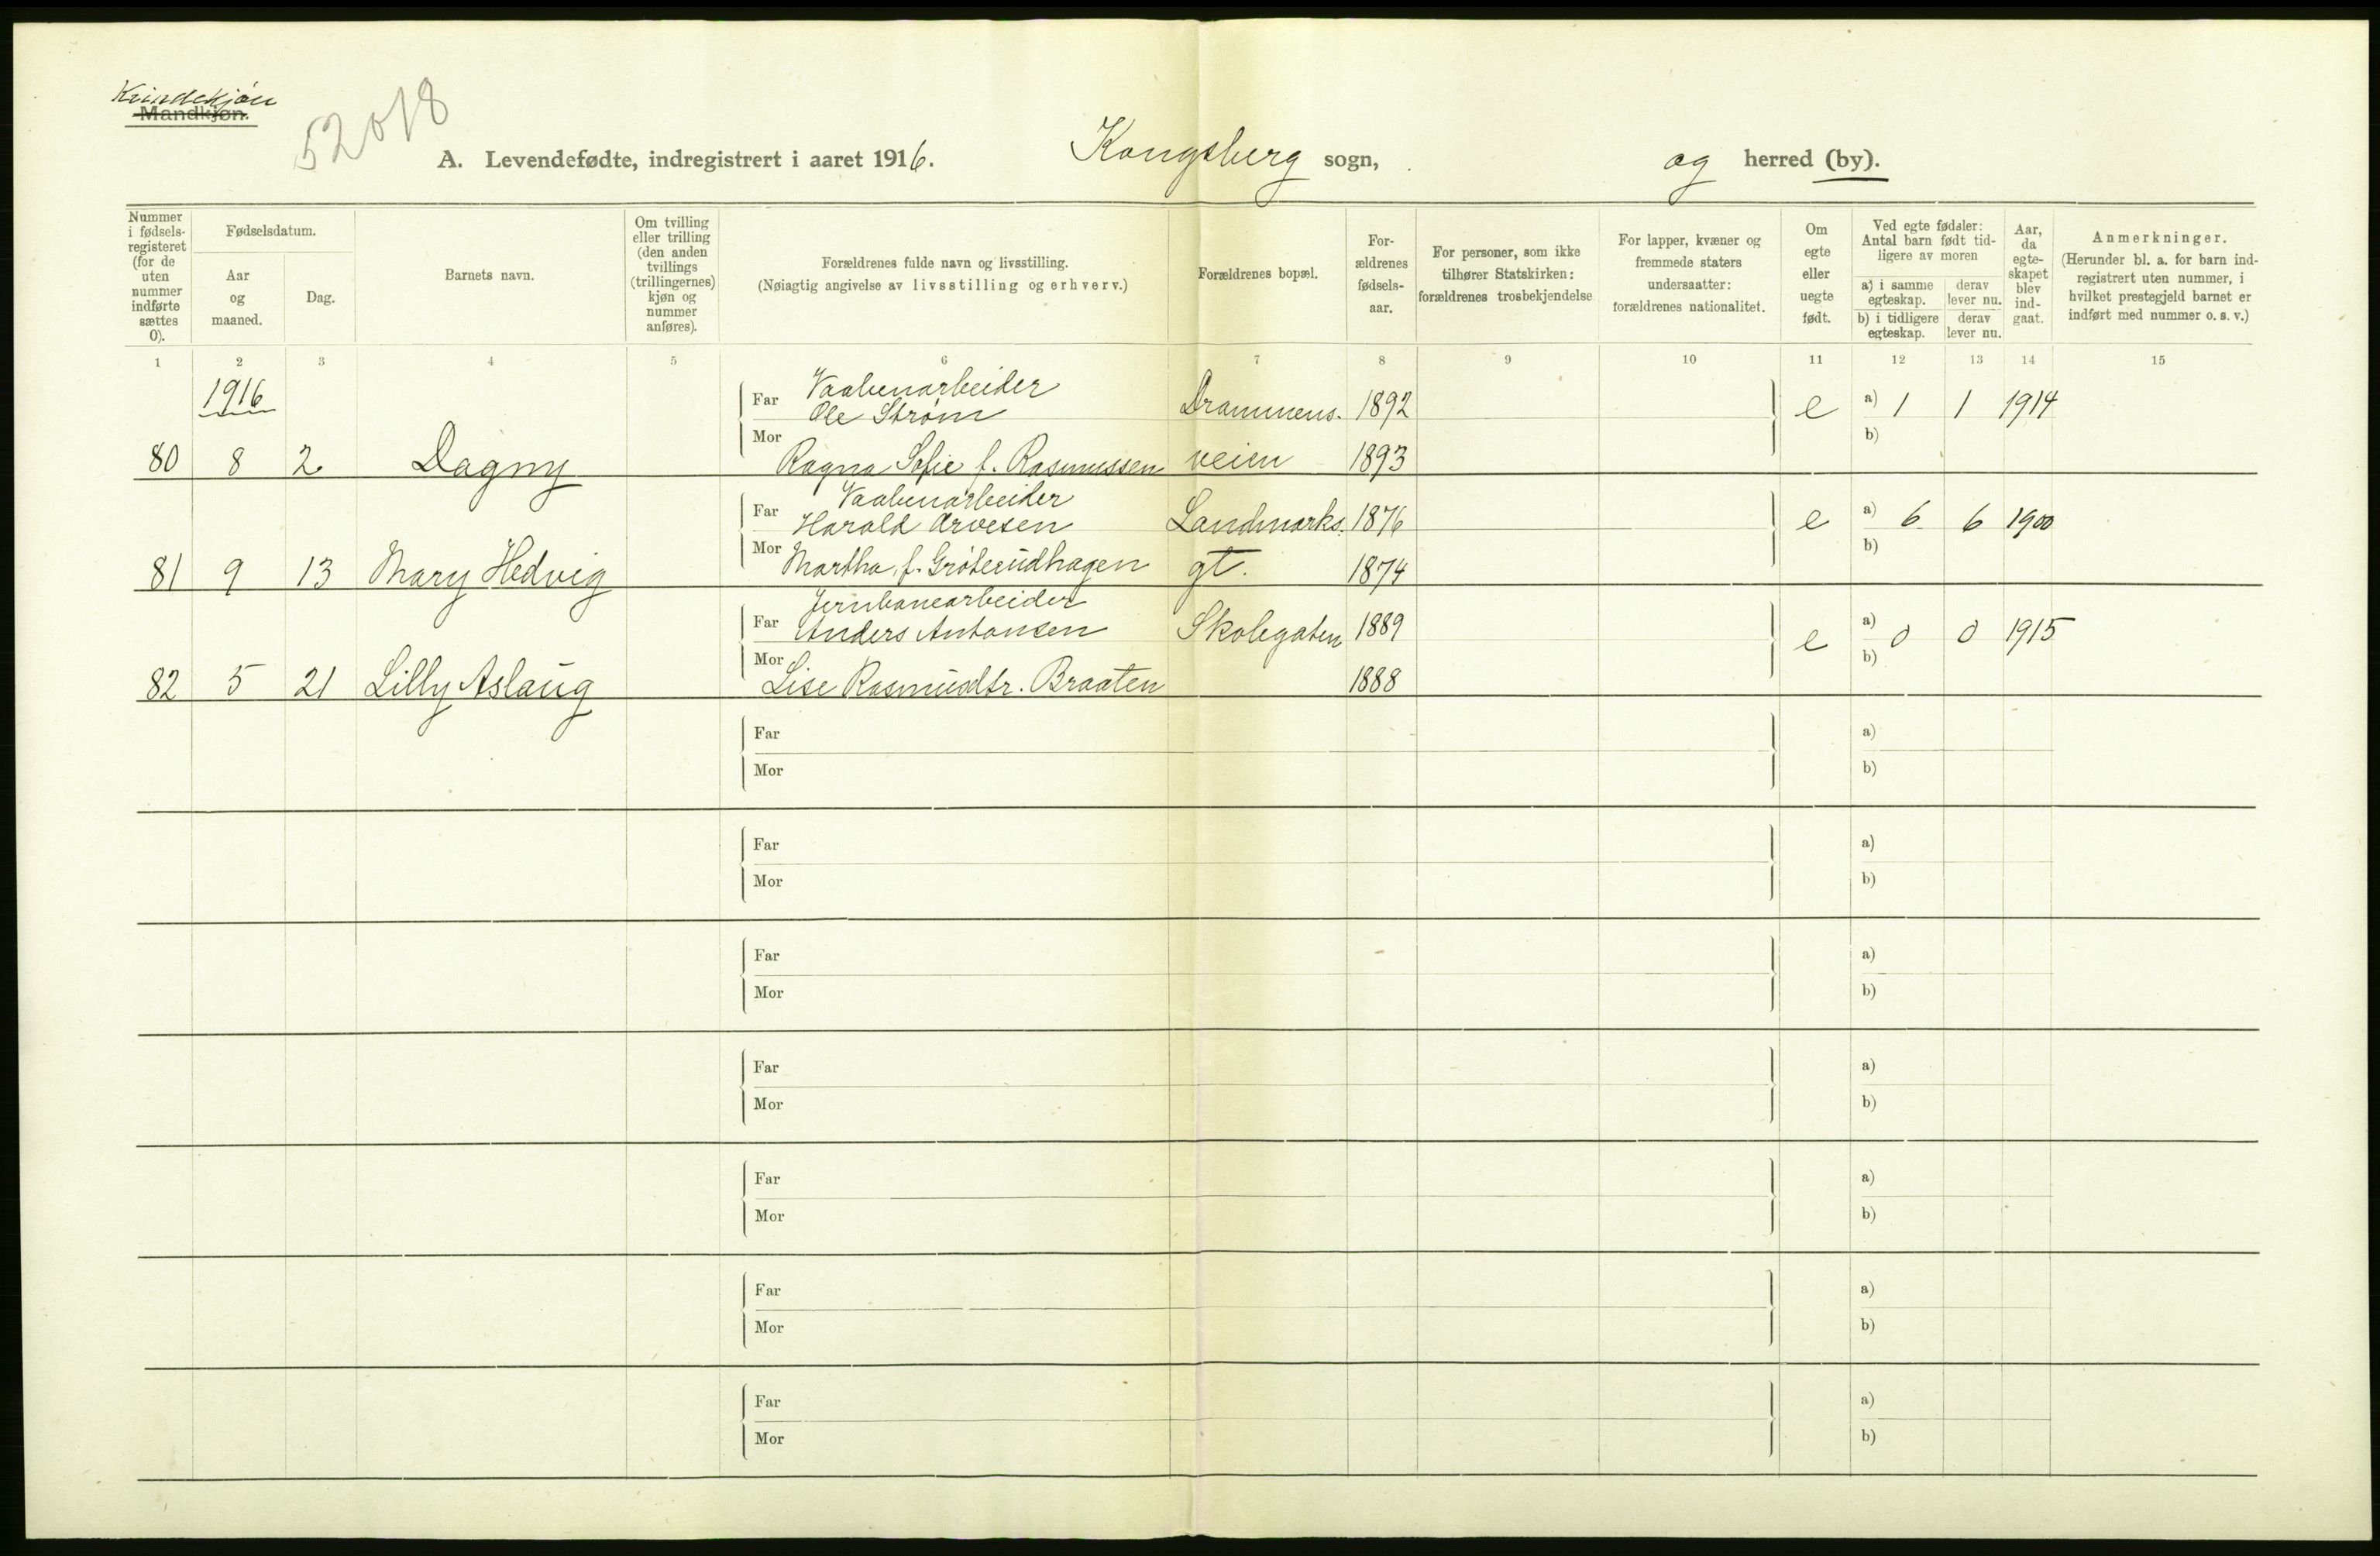 Kvindekjøn
Mandkjøn.
52018
A. Levendefødte, indregistrert i aaret 1916. Kongsberg sogn, og herred (by).
Nummer i fødsels-registeret (for de uten nummer indførte sættes 0).
Fødselsdatum.
Aar og maaned.
Dag.
Barnets navn.
Om tvilling eller trilling (den anden tvillings (trillingernes) kjøn og nummer anføres).
Forældrenes fulde navn og livsstilling.
(Nøiagtig angivelse av livsstilling og erhverv.)
Forældrenes bopæl.
For-ældrenes fødsels-aar.
For personer, som ikke tilhører Statskirken: forældrenes trosbekjendelse
For lapper, kvæner og fremmede staters undersaatter: forældrenes nationalitet.
Om egte eller uegte født.
Ved egte fødsler: Antal barn født tid-ligere av moren
a) i samme egteskap.
derav lever nu.
b) i tidligere egteskap.
derav lever nu.
Aar, da egte-skapet blev ind-gaat.
Anmerkninger.
(Herunder bl. a. for barn ind-registrert uten nummer, i hvilket prestegjeld barnet er indført med nummer o. s. v.)
1 2 3 4 5 6 7 8 9 10 11 12 13 14 15
1916
Vaabenarbeider
Far Ole Strøm Drammens. 1892 e a) 1 1 1914
Mor b)
80 8 2 Dagny Ragna Sofie f. Rasmussen veien 1893
Vaabenarbeider
Far Harald Arvesen Landmarks. 1876 e a) 6 6 1900
Mor b)
81 9 13 Mary Hedvig Martha f. Grøterudhagen gt. 1874
Jernbanearbeider
Far Anders Antonsen Skolegaten 1889 e a) 0 0 1915
Mor b)
82 5 21 Lilly Aslaug Lise Rasmusdtr. Braaten 1888
Far a)
Mor b)
Far a)
Mor b)
Far a)
Mor b)
Far a)
Mor b)
Far a)
Mor b)
Far a)
Mor b)
Far a)
Mor b)